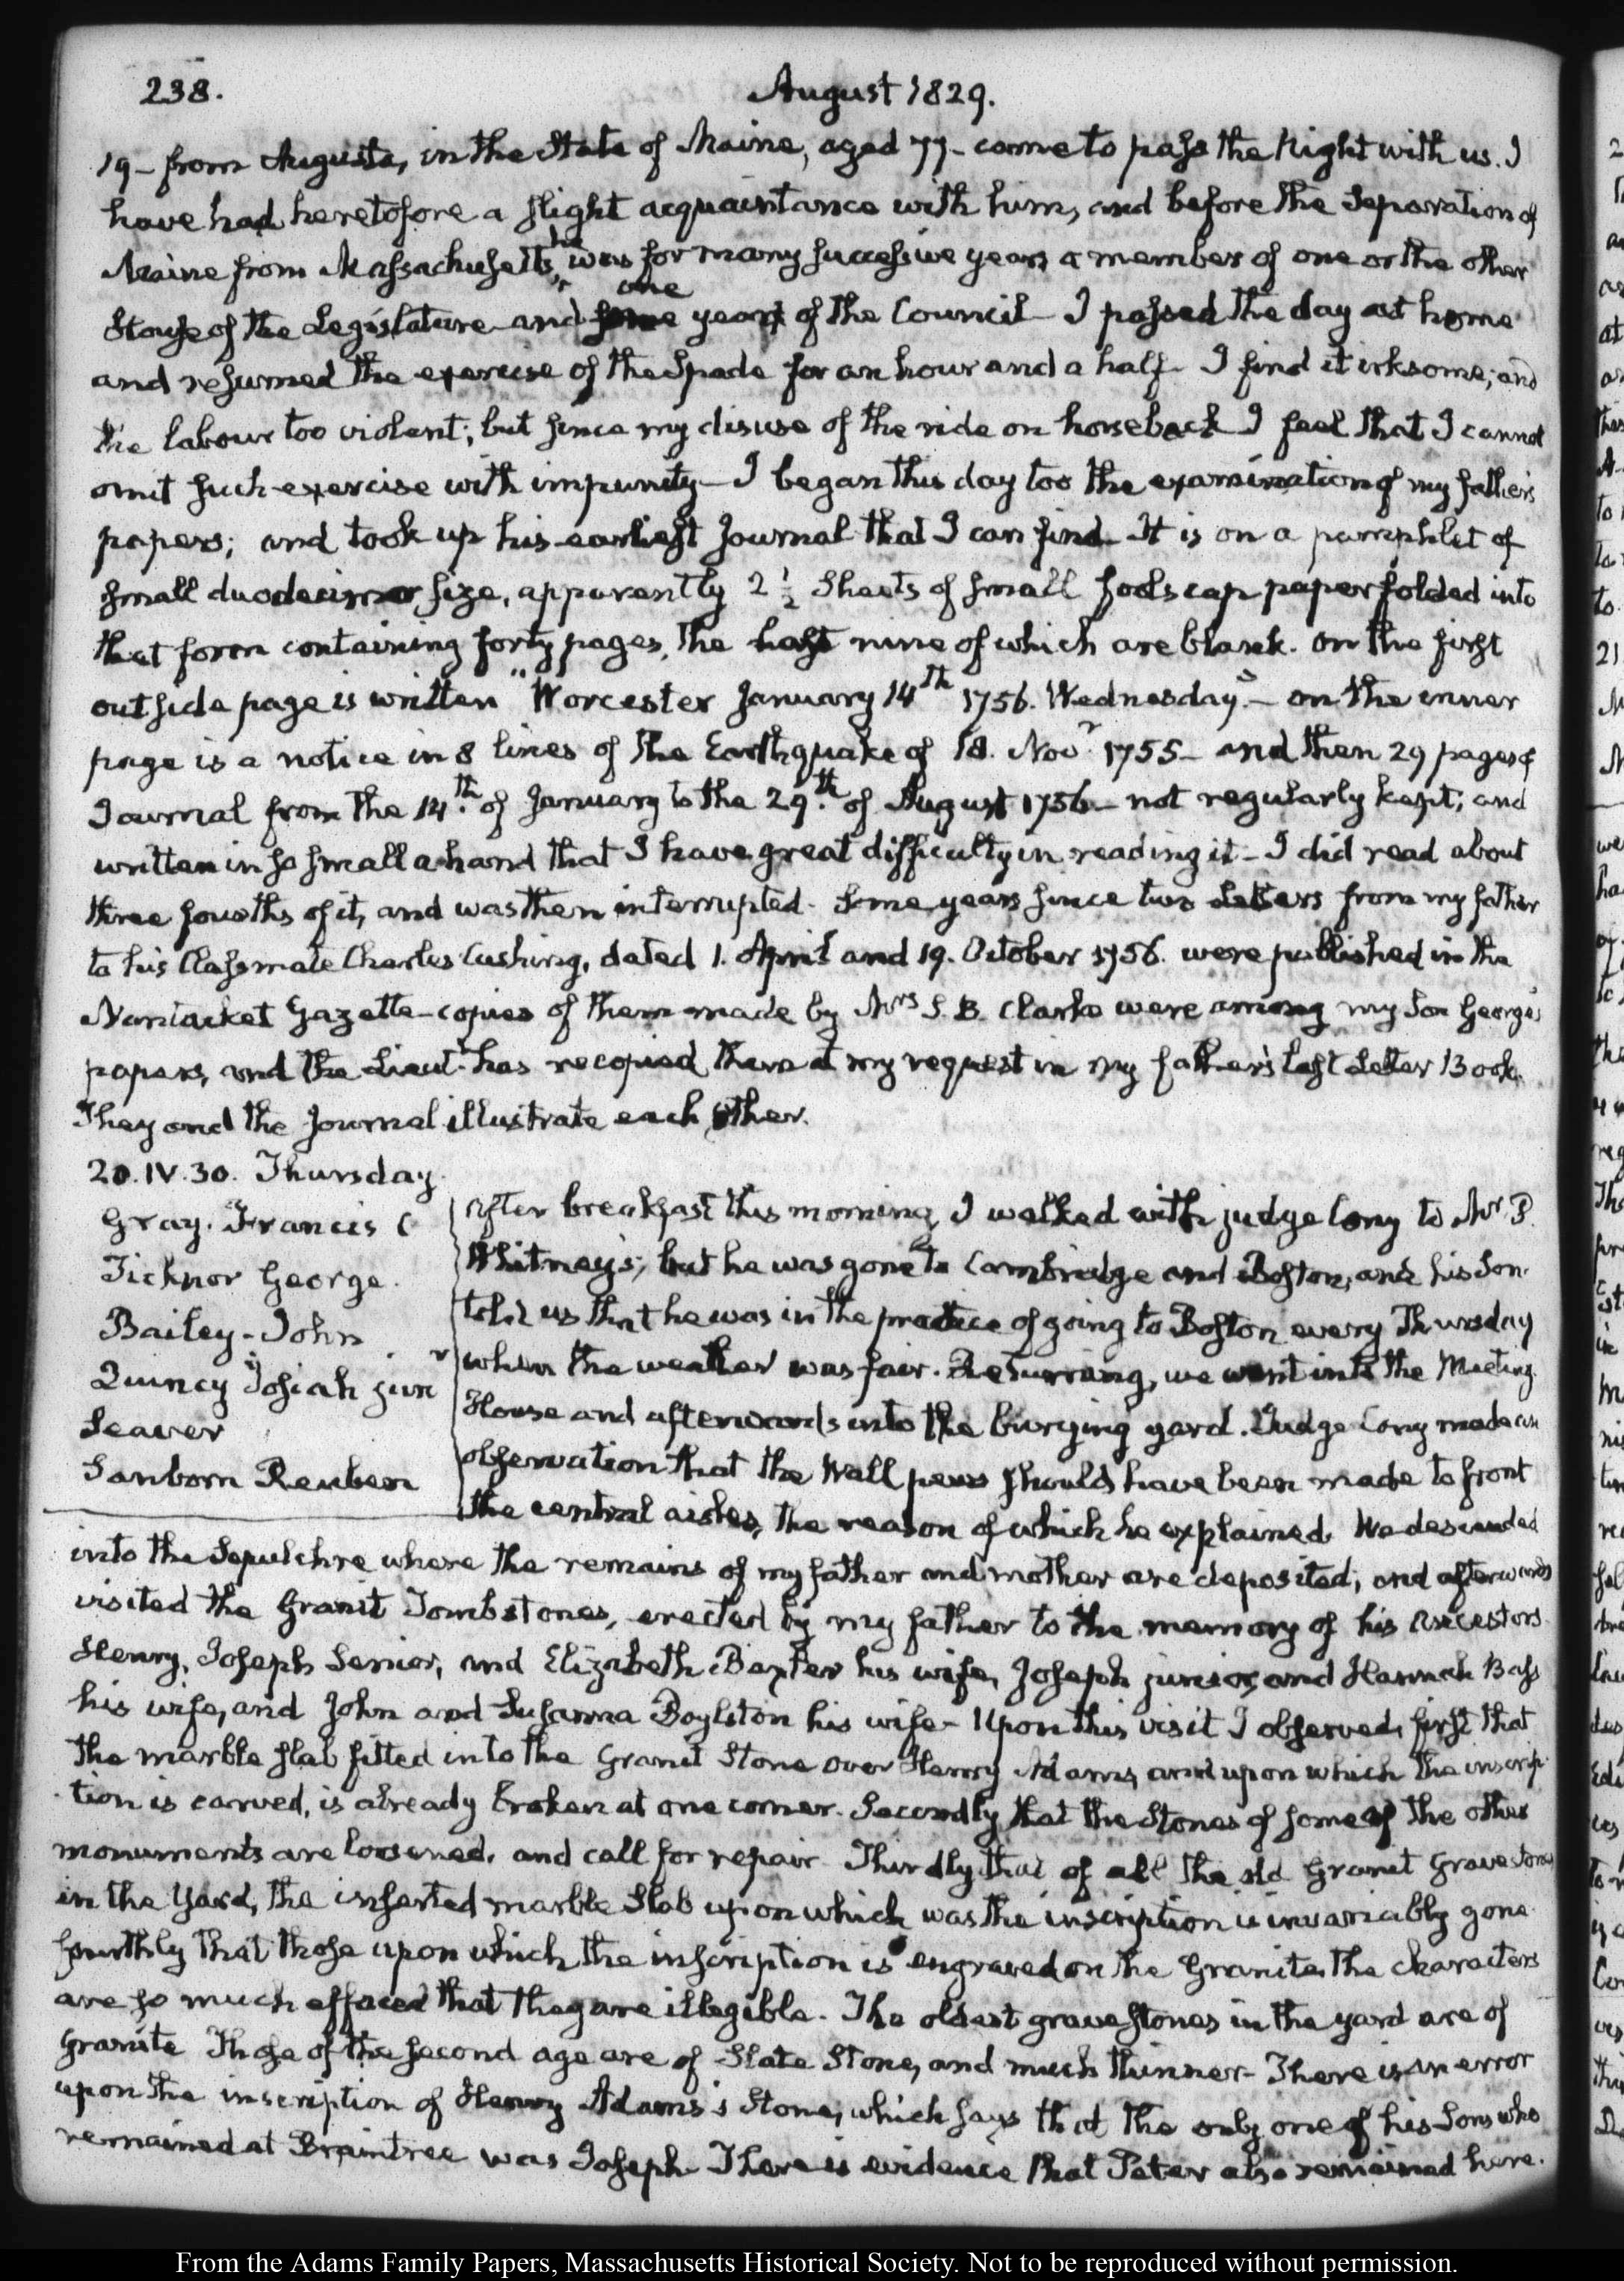 238.
August 1829.
19 – from Augusta, in the State of Maine, aged 77 – came to pass the Night with us. I
have had heretofore a slight acquaintance with him, and before the Separation of
Maine from Massachusetts, he was for many successive years a member of one or the other
House of the Legislature and one year of the Council – I passed the day at home
and resumed the exercise of the Spade for an hour and a half – I find it irksome; and
the labour too violent; but since my disuse of the ride on horseback I feel that I cannot
omit such exercise with impunity – I began this day too the examination of my father's
papers; and took up his earliest Journal that I can find – It is on a pamphlet of
small duodecimo size, apparently 2 ½ Sheets of small foolscap paper folded into
that form containing forty pages, the last nine of which are blank. On the first
outside page is written "Worcester January 14th 1756. Wednesday" – on the inner
page is a notice in 8 lines of the Earthquake of 18. Novr 1755 – and then 29 pages of
Journal from the 14th of January to the 29th of August 1756 – not regularly kept; and
written in so small a hand that I have great difficulty in reading it – I did read about
three fourths of it, and was then interrupted. Some years since two Letters from my father
to his Classmate Charles Cushing, dated 1. April and 19. October 1756. were published in the
Nantucket Gazette – copies of them made by Mrs S. B. Clarke were among my Son George's
papers, and the Lieut. has recopied them at my request in my father's last Letter Book.
They and the Journal illustrate each other.
20. IV. 30. Thursday.
Gray. Francis C
Ticknor George.
Bailey – John
Quincy Josiah junr
Seaver
Sanborn Reuben
After breakfast this morning, I walked with judge Cony to Mr P.
Whitney's; but he was gone to Cambridge and Boston, and his Son
told us that he was in the practice of going to Boston every Thursday
when the weather was fair. Returning, we went into the Meeting
House and afterwards into the burying yard. Judge Cony made an
observation that the Wall pews should have been made to front
the central aisles, the reason of which he explained. We descended
into the Sepulchre where the remains of my father and mother are deposited; and afterwards
visited the Granit Tombstones, erected by my father to the memory of his Ancestors
Henry, Joseph Senior, and Elizabeth Baxter his wife, Joseph junior, and Hannah Bass
his wife, and John and Susanna Boylston his wife – Upon this visit I observed, first that
the marble slab fitted into the Granit Stone over Henry Adams, and upon which the inscrip-
tion is carved, is already broken at one corner. Secondly that the Stones of some of the other
monuments are loosened, and call for repair. Thirdly that of all the old Granit Gravestones
in the Yard, the inserted marble Slab upon which was the inscription is invariably gone
fourthly that those upon which the inscription is engraved on the Granite, the characters
are so much effaced that they are illegible. The oldest gravestones in the yard are of
Granite Those of the second age are of Slate Stone, and much thinner – There is an error
upon the inscription of Henry Adams's Stone, which says that the only one of his Sons who
remained at Braintree was Joseph – There is evidence that Peter also remained here.
From the Adams Family Papers, Massachusetts Historical Society. Not to be reproduced without permission.